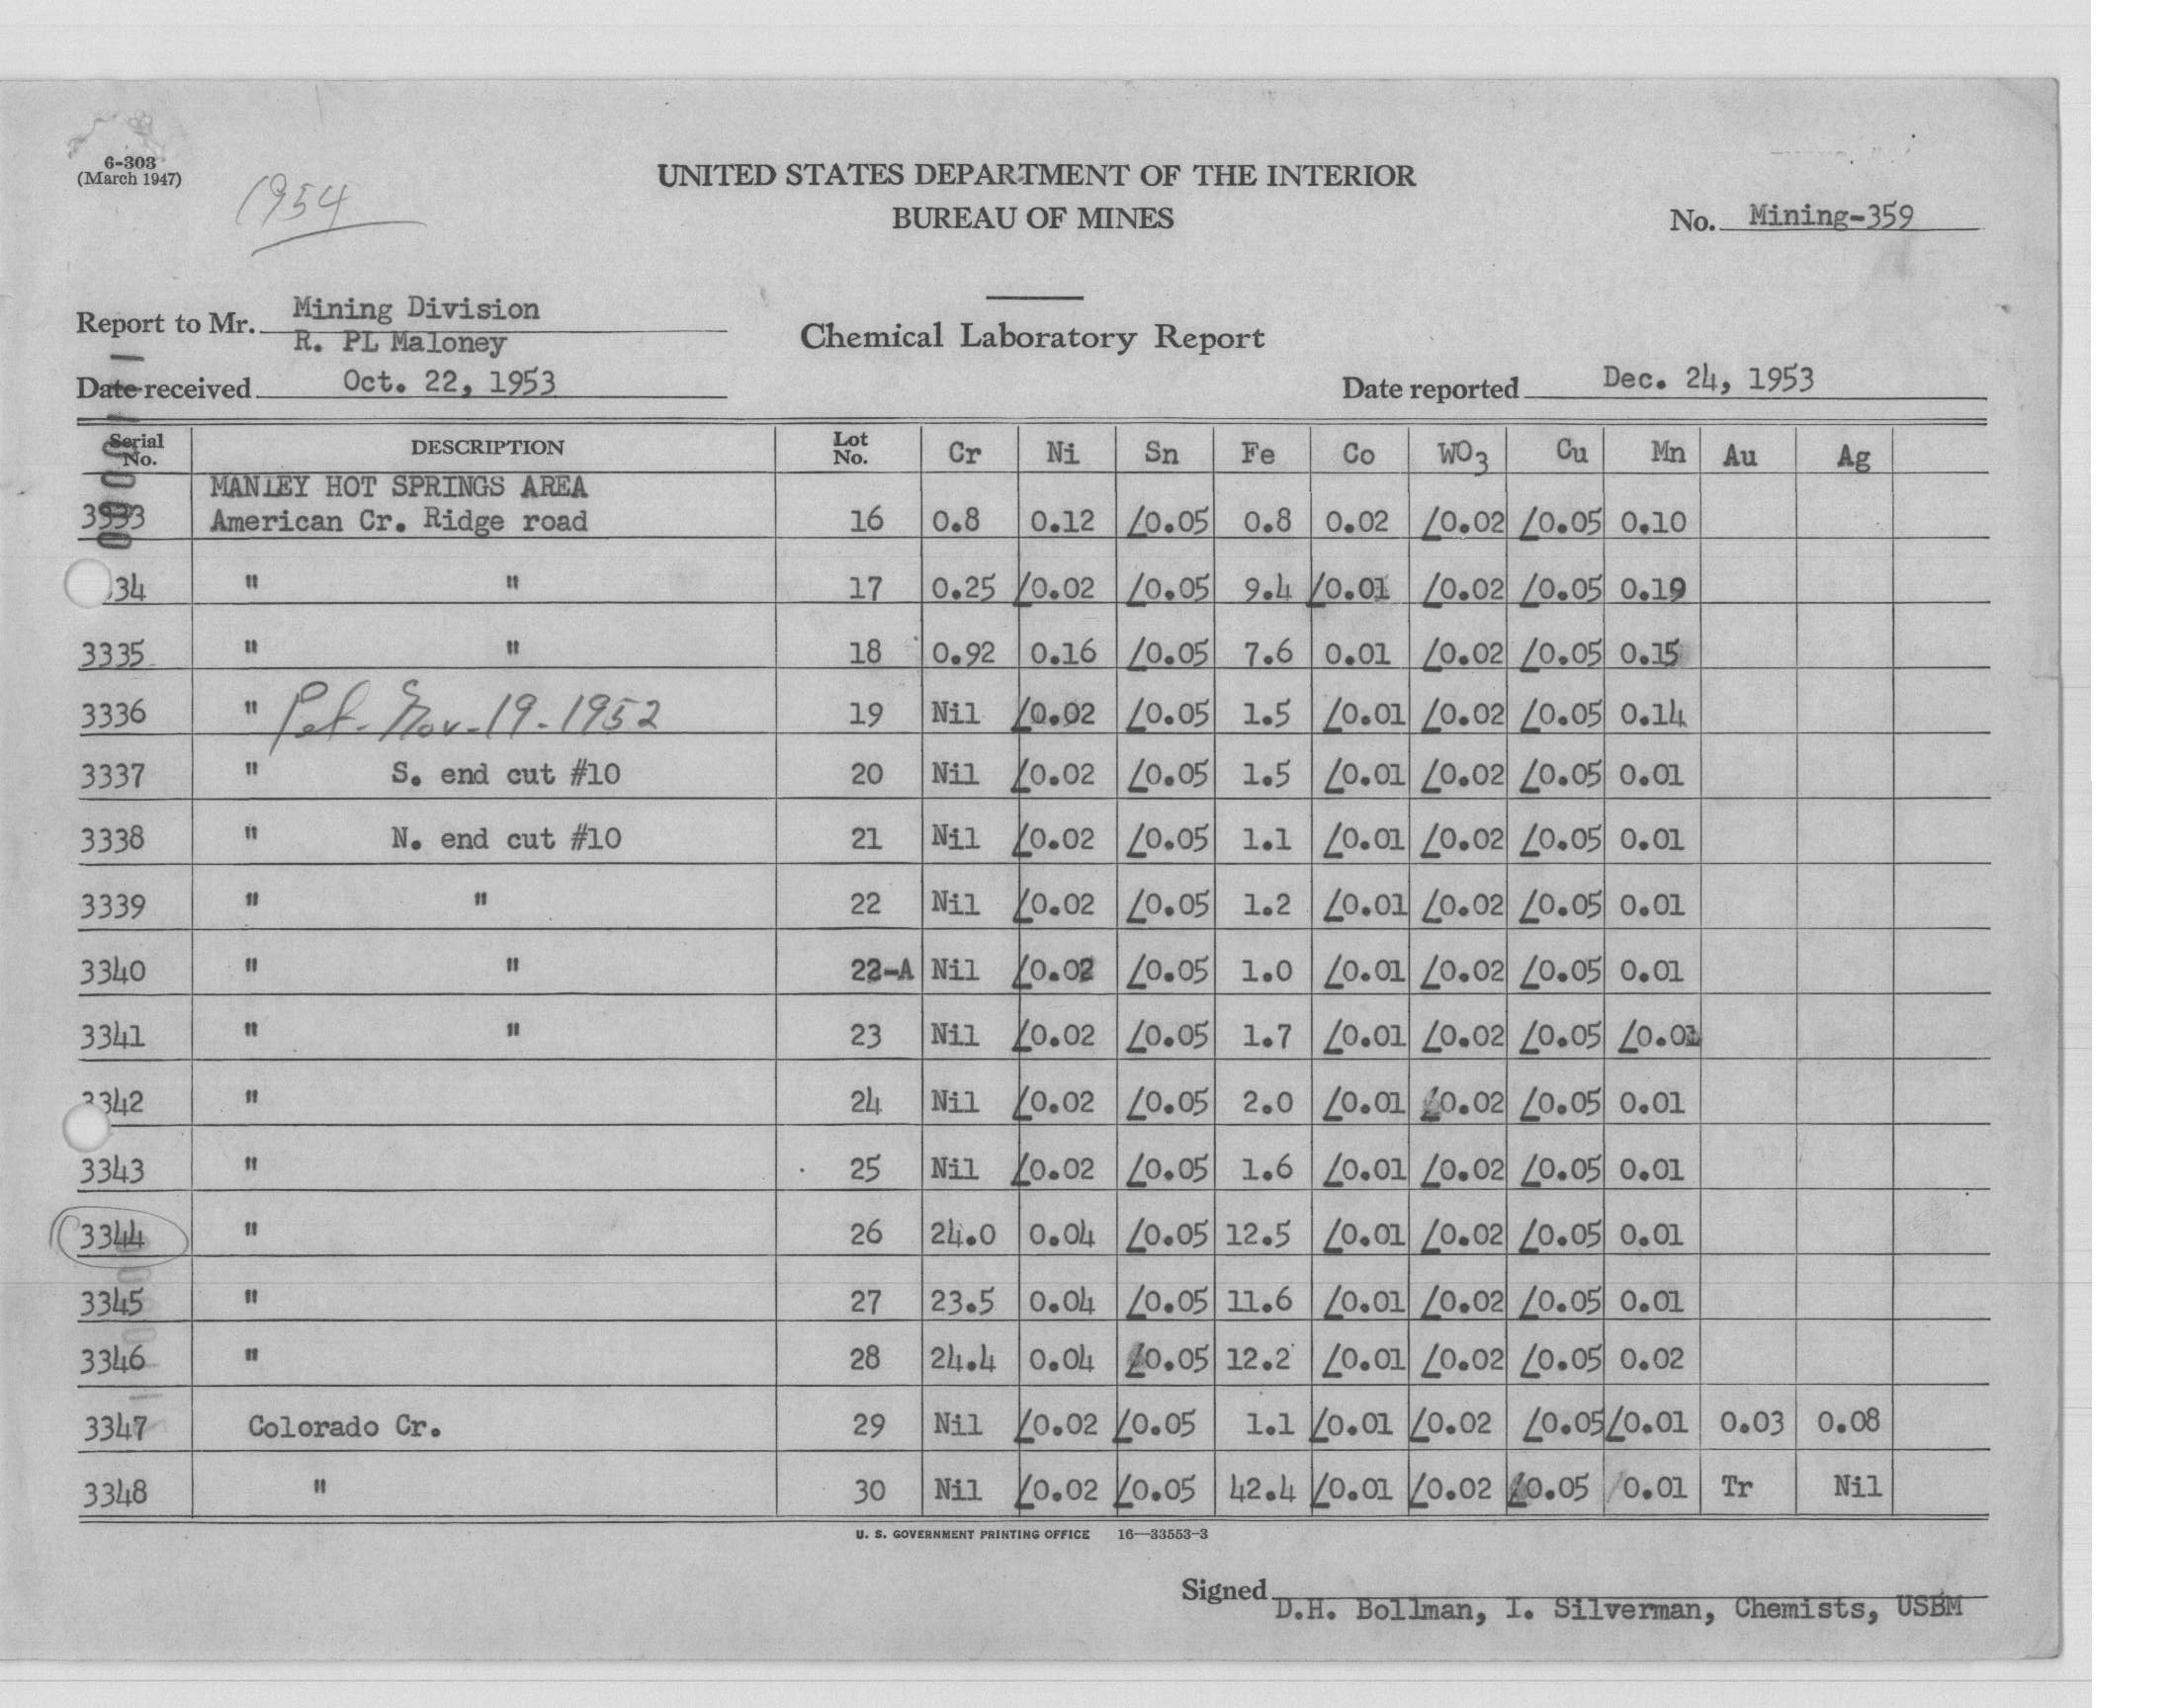 6-303
(March 1947)
1954
UNITED STATES DEPARTMENT OF THE INTERIOR
BUREAU OF MINES
No. Mining-359
Report to Mr. Mining Division
R. PL Maloney
Chemical Laboratory Report
Date received Oct. 22, 1953
Date reported Dec. 24, 1953
Serial No. DESCRIPTION Lot No. Cr Ni Sn Fe Co WO3 Cu Mn Au Ag
MANLEY HOT SPRINGS AREA
3333 American Cr. Ridge road 16 0.8 0.12 ∠0.05 0.8 0.02 ∠0.02 ∠0.05 0.10
34 " " 17 0.25 ∠0.02 ∠0.05 9.4 ∠0.01 ∠0.02 ∠0.05 0.19
3335 " " 18 0.92 0.16 ∠0.05 7.6 0.01 ∠0.02 ∠0.05 0.15
3336 " Pet. Nov-19-1952 19 Nil ∠0.02 ∠0.05 1.5 ∠0.01 ∠0.02 ∠0.05 0.14
3337 " S. end cut #10 20 Nil ∠0.02 ∠0.05 1.5 ∠0.01 ∠0.02 ∠0.05 0.01
3338 " N. end cut #10 21 Nil ∠0.02 ∠0.05 1.1 ∠0.01 ∠0.02 ∠0.05 0.01
3339 " " 22 Nil ∠0.02 ∠0.05 1.2 ∠0.01 ∠0.02 ∠0.05 0.01
3340 " " 22-A Nil ∠0.02 ∠0.05 1.0 ∠0.01 ∠0.02 ∠0.05 0.01
3341 " " 23 Nil ∠0.02 ∠0.05 1.7 ∠0.01 ∠0.02 ∠0.05 ∠0.01
3342 " 24 Nil ∠0.02 ∠0.05 2.0 ∠0.01 ∠0.02 ∠0.05 0.01
3343 " 25 Nil ∠0.02 ∠0.05 1.6 ∠0.01 ∠0.02 ∠0.05 0.01
3344 " 26 24.0 0.04 ∠0.05 12.5 ∠0.01 ∠0.02 ∠0.05 0.01
3345 " 27 23.5 0.04 ∠0.05 11.6 ∠0.01 ∠0.02 ∠0.05 0.01
3346 " 28 24.4 0.04 ∠0.05 12.2 ∠0.01 ∠0.02 ∠0.05 0.02
3347 Colorado Cr. 29 Nil ∠0.02 ∠0.05 1.1 ∠0.01 ∠0.02 ∠0.05 ∠0.01 0.03 0.08
3348 " 30 Nil ∠0.02 ∠0.05 42.4 ∠0.01 ∠0.02 ∠0.05 /0.01 Tr Nil
U. S. GOVERNMENT PRINTING OFFICE 16—33553-3
Signed D.H. Bollman, I. Silverman, Chemists, USBM